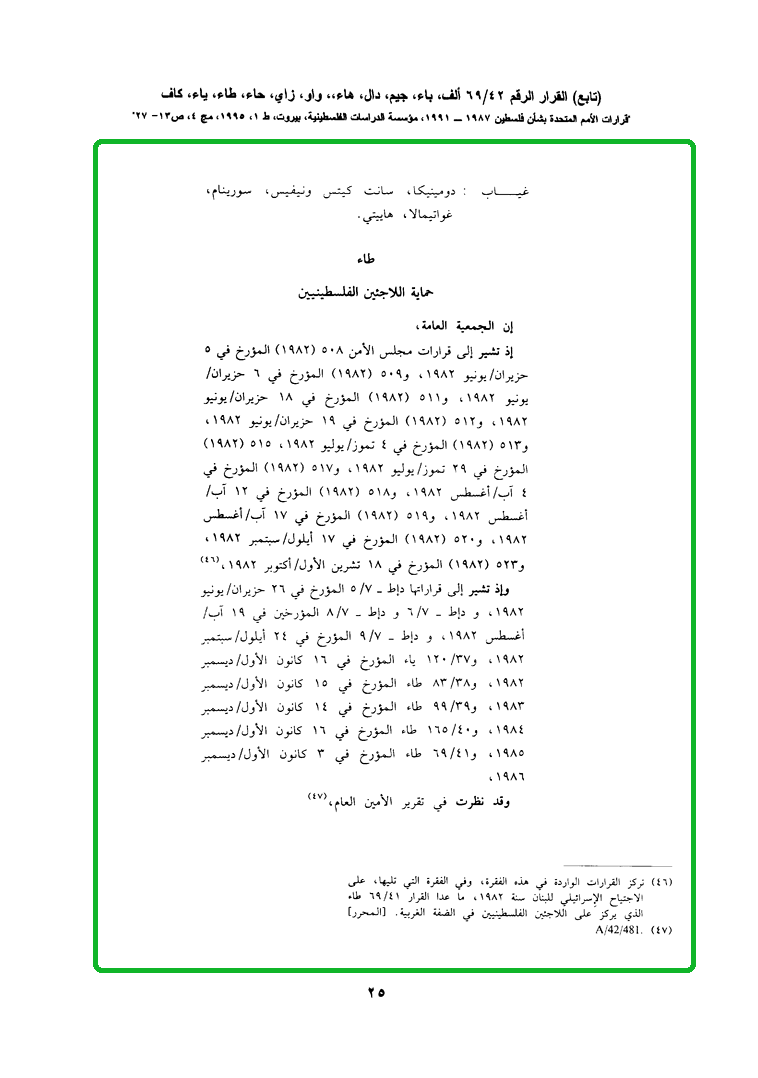 (تابع) القرار الرقم ٦٩/٤٢ ألف، باء، جيم، دال، هاء،، واو، زاي، حاء، طاء، ياء، كاف
"قرارات الأمم المتحدة بشأن فلسطين ١٩٨٧ ــ ١٩٩١، مؤسسة الدراسات الفلسطينية، بيروت، ط ١، ١٩٩٥، مج ٤، ص١٣- ٢٧"
غيـــاب : دومينيكا، سانت كيتس ونيفيس، سورينام،
غواتيمالا، هاييتي.
طاء
حماية اللاجئين الفلسطينيين
إن الجمعية العامة،
إذ تشير إلى قرارات مجلس الأمن ٥٠٨ (١٩٨٢) المؤرخ في ٥
حزيران/يونيو ١٩٨٢، و٥٠٩ (١٩٨٢) المؤرخ في ٦ حزيران/
يونيو ١٩٨٢، و٥١١ (١٩٨٢) المؤرخ في ١٨ حزيران/يونيو
١٩٨٢، و٥١٢ (١٩٨٢) المؤرخ في ١٩ حزيران/يونيو ١٩٨٢،
و٥١٣ (١٩٨٢) المؤرخ في ٤ تموز/يوليو ١٩٨٢، ٥١٥ (١٩٨٢)
المؤرخ في ٢٩ تموز/يوليو ١٩٨٢، و٥١٧ (١٩٨٢) المؤرخ في
٤ آب/أغسطس ١٩٨٢، و٥١٨ (١٩٨٢) المؤرخ في ١٢ آب/
أغسطس ١٩٨٢، و٥١٩ (١٩٨٢) المؤرخ في ١٧ آب/أغسطس
١٩٨٢، و٥٢٠ (١٩٨٢) المؤرخ في ١٧ أيلول/سبتمبر ١٩٨٢،
و٥٢٣ (١٩٨٢) المؤرخ في ١٨ تشرين الأول/أكتوبر ١٩٨٢،(٤٦)
وإذ تشير إلى قراراتها دإط ـ ٥/٧ المؤرخ في ٢٦ حزيران/يونيو
١٩٨٢، و دإط ـ ٦/٧ و دإط ـ ٨/٧ المؤرخين في ١٩ آب/
أغسطس ١٩٨٢، و دإط ـ ٩/٧ المؤرخ في ٢٤ أيلول/سبتمبر
١٩٨٢، و١٢٠/٣٧ ياء المؤرخ في ١٦ كانون الأول/ديسمبر
١٩٨٢، و٨٣/٣٨ طاء المؤرخ في ١٥ كانون الأول/ديسمبر
١٩٨٣، و٩٩/٣٩ طاء المؤرخ في ١٤ كانون الأول/ديسمبر
١٩٨٤، و١٦٥/٤٠ طاء المؤرخ في ١٦ كانون الأول/ديسمبر
١٩٨٥، و٦٩/٤١ طاء المؤرخ في ٣ كانون الأول/ديسمبر
١٩٨٦،
وقد نظرت في تقرير الأمين العام،(٤٧)
(٤٦) تركز القرارات الواردة في هذه الفقرة، وفي الفقرة التي تليها، على
الاجتياح الإسرائيلي للبنان سنة ١٩٨٢، ما عدا القرار ٦٩/٤١ طاء
الذي يركز على اللاجئين الفلسطينيين في الضفة الغربية. [المحرر]
(٤٧) A/42/481.
٢٥